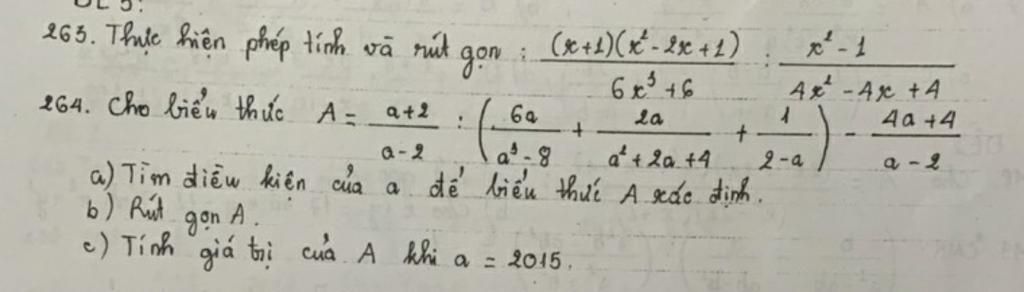 263. Thực hiện phép tính và rút gọn : (x+1)(x²-2x+1)/(6x³+6) : (x²-1)/(4x²-4x+4)
264. Cho biểu thức A = (a+2)/(a-2) : (6a/(a³-8) + 2a/(a²+2a+4) + 1/(2-a)) - (4a+4)/(a-2)
a) Tìm điều kiện của a để biểu thức A xác định.
b) Rút gọn A.
c) Tính giá trị của A khi a = 2015.